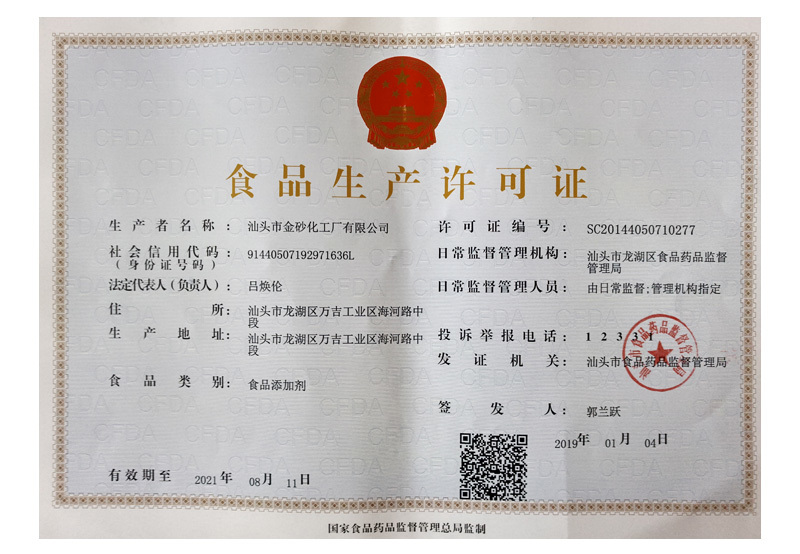 食品生产许可证
生产者名称： 汕头市金砂化工厂有限公司
社会信用代码： 91440507192971636L
（身份证号码）
法定代表人（负责人）： 吕焕伦
住所： 汕头市龙湖区万吉工业区海河路中
段
生产地址： 汕头市龙湖区万吉工业区海河路中
段
食品类别： 食品添加剂
有效期至 2021年 08月 11日
许可证编号： SC20144050710277
日常监督管理机构： 汕头市龙湖区食品药品监督
管理局
日常监督管理人员： 由日常监督;管理机构指定
投诉举报电话： 12331
发证机关： 汕头市食品药品监督管理局
签发人： 郭兰跃
2019年 01月 04日
汕头市食品药品监督管理局
国家食品药品监督管理总局监制
CFDA